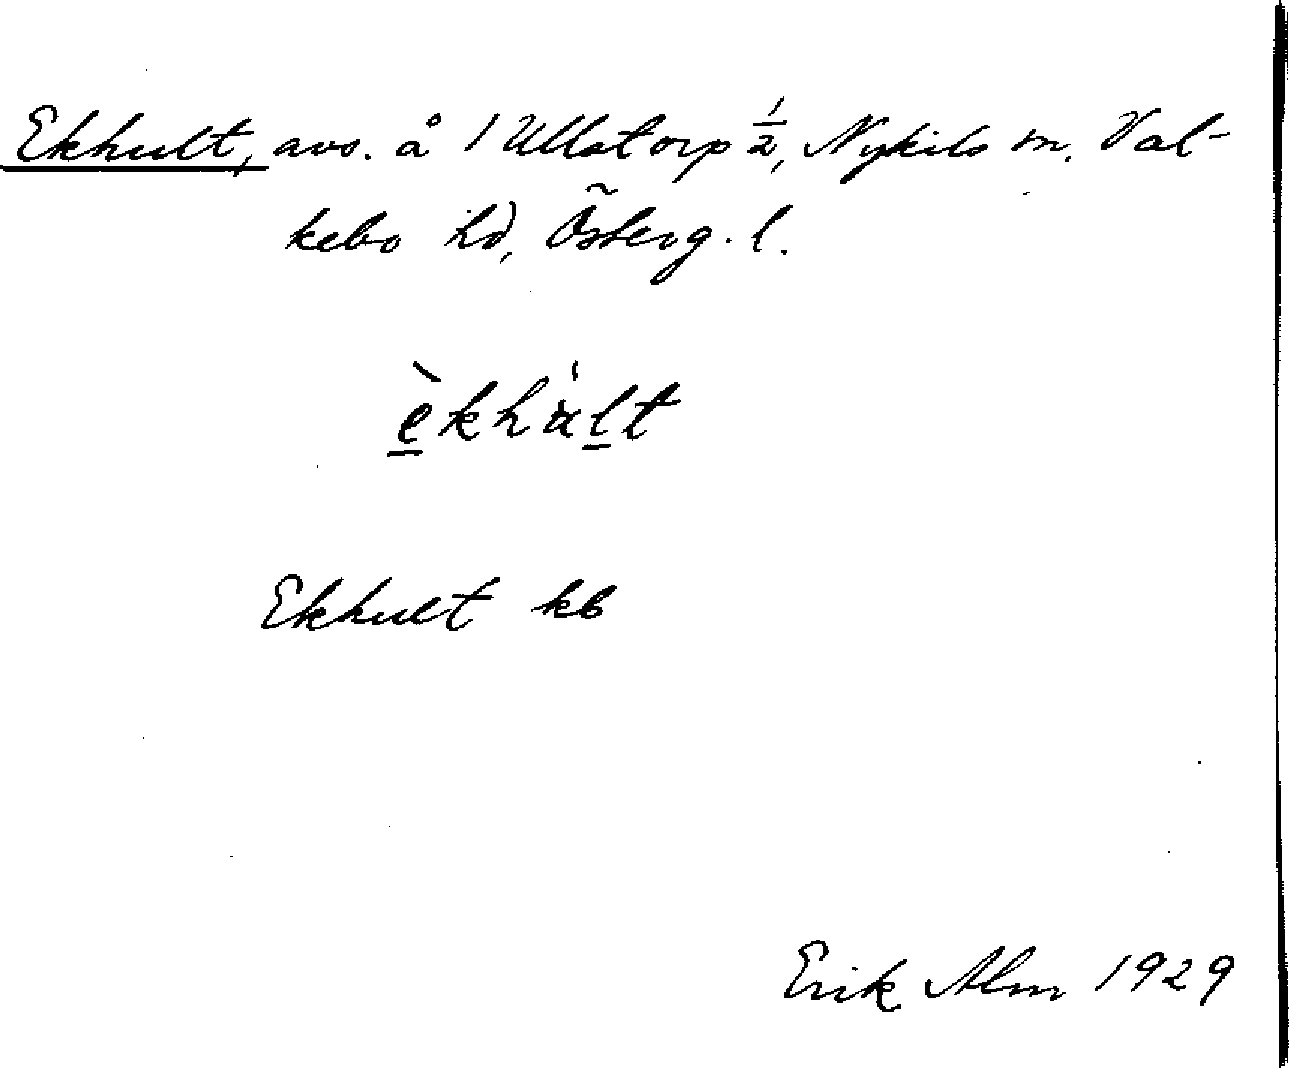 Ekhult, avs. å 1 Ullstorp 1/2, Nykils sn. Val-
kebo hd, Österg. l.
è̲khàl̲t
Ekhult kb
Erik Alm 1929